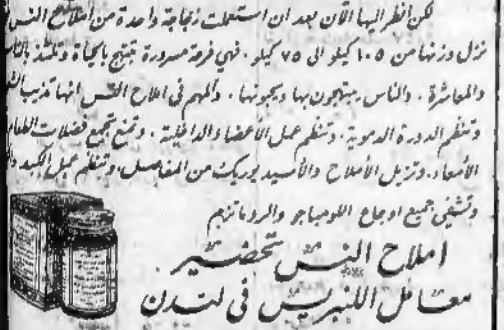 لكن انظر اليها الآن بعد ان استعملت زجاجة واحدة من املاح النس
نزل وزنها من ١٠٥ كيلو الى ٧٥ كيلو. فهي فرحة مسرورة تبتهج بالحياة وتلتذ
والمعاشرة. والناس يبتهجون بها ويحبونها. والمهم في املاح النس انها تذيب
وتنظم الدورة الدموية. وتنظم عمل الأعضا الداخلية. وتمنع تجمع فضلات الطعام
الأمعاء. وتزيل الأملاح والأسيد يوريك من المفاصل. وتنظم عمل الكبد
وتشفي جميع اوجاع اللومباجو والروماتزم
املاح النس تحضير
معامل اللنبريس في لندن